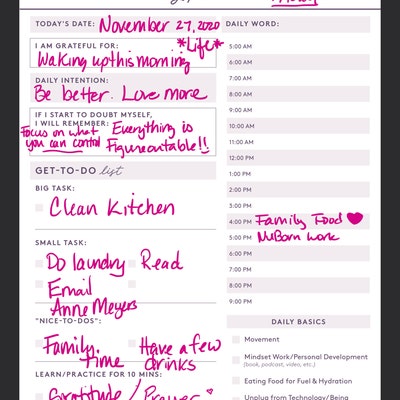 TODAY'S DATE: November 27, 2020
I AM GRATEFUL FOR: *Life*
Waking up this morning
DAILY INTENTION:
Be better. Love more
IF I START TO DOUBT MYSELF,
I WILL REMEMBER: Everything is
Focus on what
you can control Figureoutable!!
GET-TO-DO list
BIG TASK:
Clean Kitchen
SMALL TASK:
Do laundry Read
Email
Anne Meyers
"NICE-TO-DOS":
Family time Have a few
drinks
LEARN/PRACTICE FOR 10 MINS:
Gratitude / Prayer
DAILY WORD:
5:00 AM
6:00 AM
7:00 AM
8:00 AM
9:00 AM
10:00 AM
11:00 AM
12:00 PM
1:00 PM
2:00 PM
3:00 PM
4:00 PM Family Food ❤
5:00 PM NuBorn work
6:00 PM
7:00 PM
8:00 PM
9:00 PM
DAILY BASICS
Movement
Mindset Work/Personal Development
(book, podcast, video, etc.)
Eating Food for Fuel & Hydration
Unplug from Technology/Being